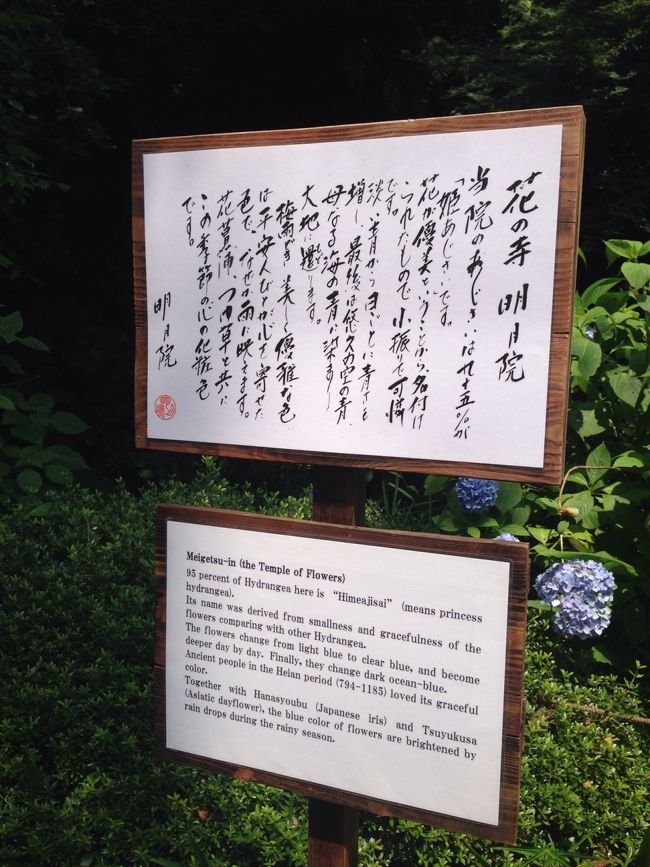 花の寺 明月院
当院のあじさいは九十五%が
「姫あじさい」です。
花が優美ということから名付け
られたもので、小振りで可憐
です。
淡い青から日ごとに青さを
増し、最後は悠久の空の青、
母なる海の青に染まり
大地に還ります。
梅雨 美しく優雅な色
は平安人びとが心を寄せた
色で、なぜか雨に映えます。
花菖蒲、つゆ草と共に
この季節の心の化粧色
です。
明月院
Meigetsu-in (the Temple of Flowers)
95 percent of Hydrangea here is “Himeajisai” (means princess
hydrangea).
Its name was derived from smallness and gracefulness of the
flowers comparing with other Hydrangea.
The flowers change from light blue to clear blue, and become
deeper day by day. Finally, they change dark ocean-blue.
Ancient people in the Heian period (794-1185) loved its graceful
color.
Together with Hanasyoubu (Japanese iris) and Tsuyukusa
(Asiatic dayflower), the blue color of flowers are brightened by
rain drops during the rainy season.